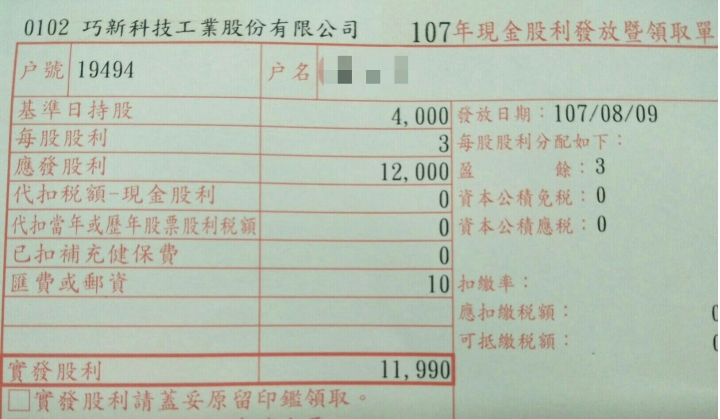 0102 巧新科技工業股份有限公司 107年現金股利發放暨領取單
户號 19494 户名
基準日持股 4,000 發放日期：107/08/09
每股股利 3 每股股利分配如下：
應發股利 12,000 盈餘：3
代扣稅額-現金股利 0 資本公積免稅：0
代扣當年或歷年股票股利稅額 0 資本公積應稅：0
已扣補充健保費 0
匯費或郵資 10 扣繳率：
應扣繳稅額： 0
可抵繳稅額： 0
實發股利 11,990
□實發股利請蓋妥原留印鑑領取。